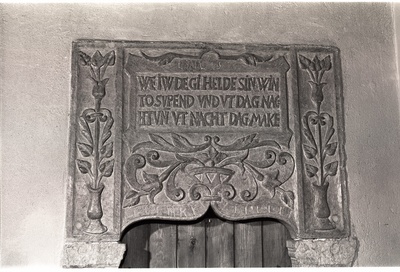 WE IW DE GI HELDE SIN WIN
TO SVPEND VND VT DAG NAG
HT VN VT NACHT DAG MAKE